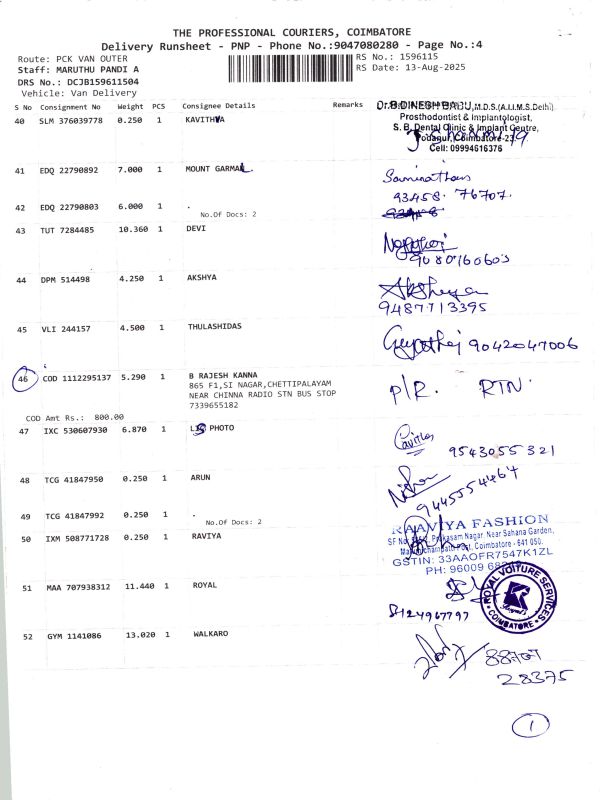 THE PROFESSIONAL COURIERS, COIMBATORE
Delivery Runsheet - PNP - Phone No.:9047080280 - Page No.:4
Route: PCK VAN OUTER
RS No.: 1596115
Staff: MARUTHU PANDI A
RS Date: 13-Aug-2025
DRS No.: DCJB159611504
Vehicle: Van Delivery
S No Consignment No Weight PCS Consignee Details Remarks
Dr.B.DINESH BABU,M.D.S.(A.I.I.M.S.Delhi).
Prosthodontist & Implantologist,
S. B. Dental Clinic & Implant Centre,
Podanur, Coimbatore-23.
Cell: 09994616376
40 SLM 376039778 0.250 1 KAVITHA
41 EDQ 22790892 7.000 1 MOUNT GARMAL.
Saminathan
93458. 76707.
42 EDQ 22790803 6.000 1 .
No.Of Docs: 2
43 TUT 7284485 10.360 1 DEVI
9080160603
44 DPM 514498 4.250 1 AKSHYA
Akshaya
9487713395
45 VLI 244157 4.500 1 THULASHIDAS
9042047006
46 COD 1112295137 5.290 1 B RAJESH KANNA
865 F1,SI NAGAR,CHETTIPALAYAM
NEAR CHINNA RADIO STN BUS STOP
7339655182
P/R. RTN.
COD Amt Rs.: 800.00
47 IXC 530607930 6.870 1 PHOTO
9543055321
48 TCG 41847950 0.250 1 ARUN
9445554467
49 TCG 41847992 0.250 1 .
No.Of Docs: 2
50 IXM 508771728 0.250 1 RAVIYA
RAAVIYA FASHION
SF No. Prakasam Nagar, Near Sahana Garden,
Post, Coimbatore - 641 050.
GSTIN: 33AAOFR7547K1ZL
PH: 96009
51 MAA 707938312 11.440 1 ROYAL
ROYAL VOITURE SERVICES
COIMBATORE
8124967797
52 GYM 1141086 13.020 1 WALKARO
88707
28375
1